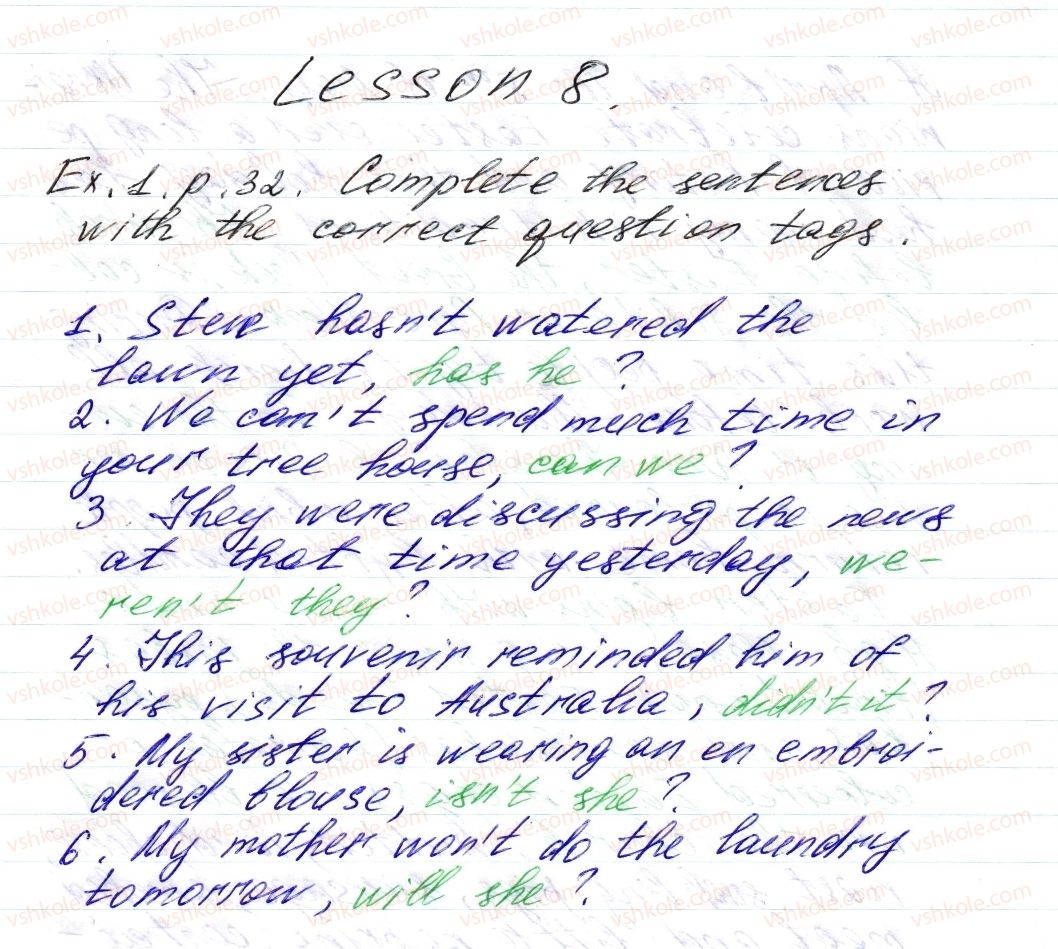 Lesson 8.
Ex. 1. p. 32. Complete the sentences
with the correct question tags.
1. Steve hasn't watered the
lawn yet, has he?
2. We can't spend much time in
your tree house, can we?
3. They were discussing the news
at that time yesterday, we-
ren't they?
4. This souvenir reminded him of
his visit to Australia, didn't it?
5. My sister is wearing an en embroi-
dered blouse, isn't she?
6. My mother won't do the laundry
tomorrow, will she?
vshkole.com